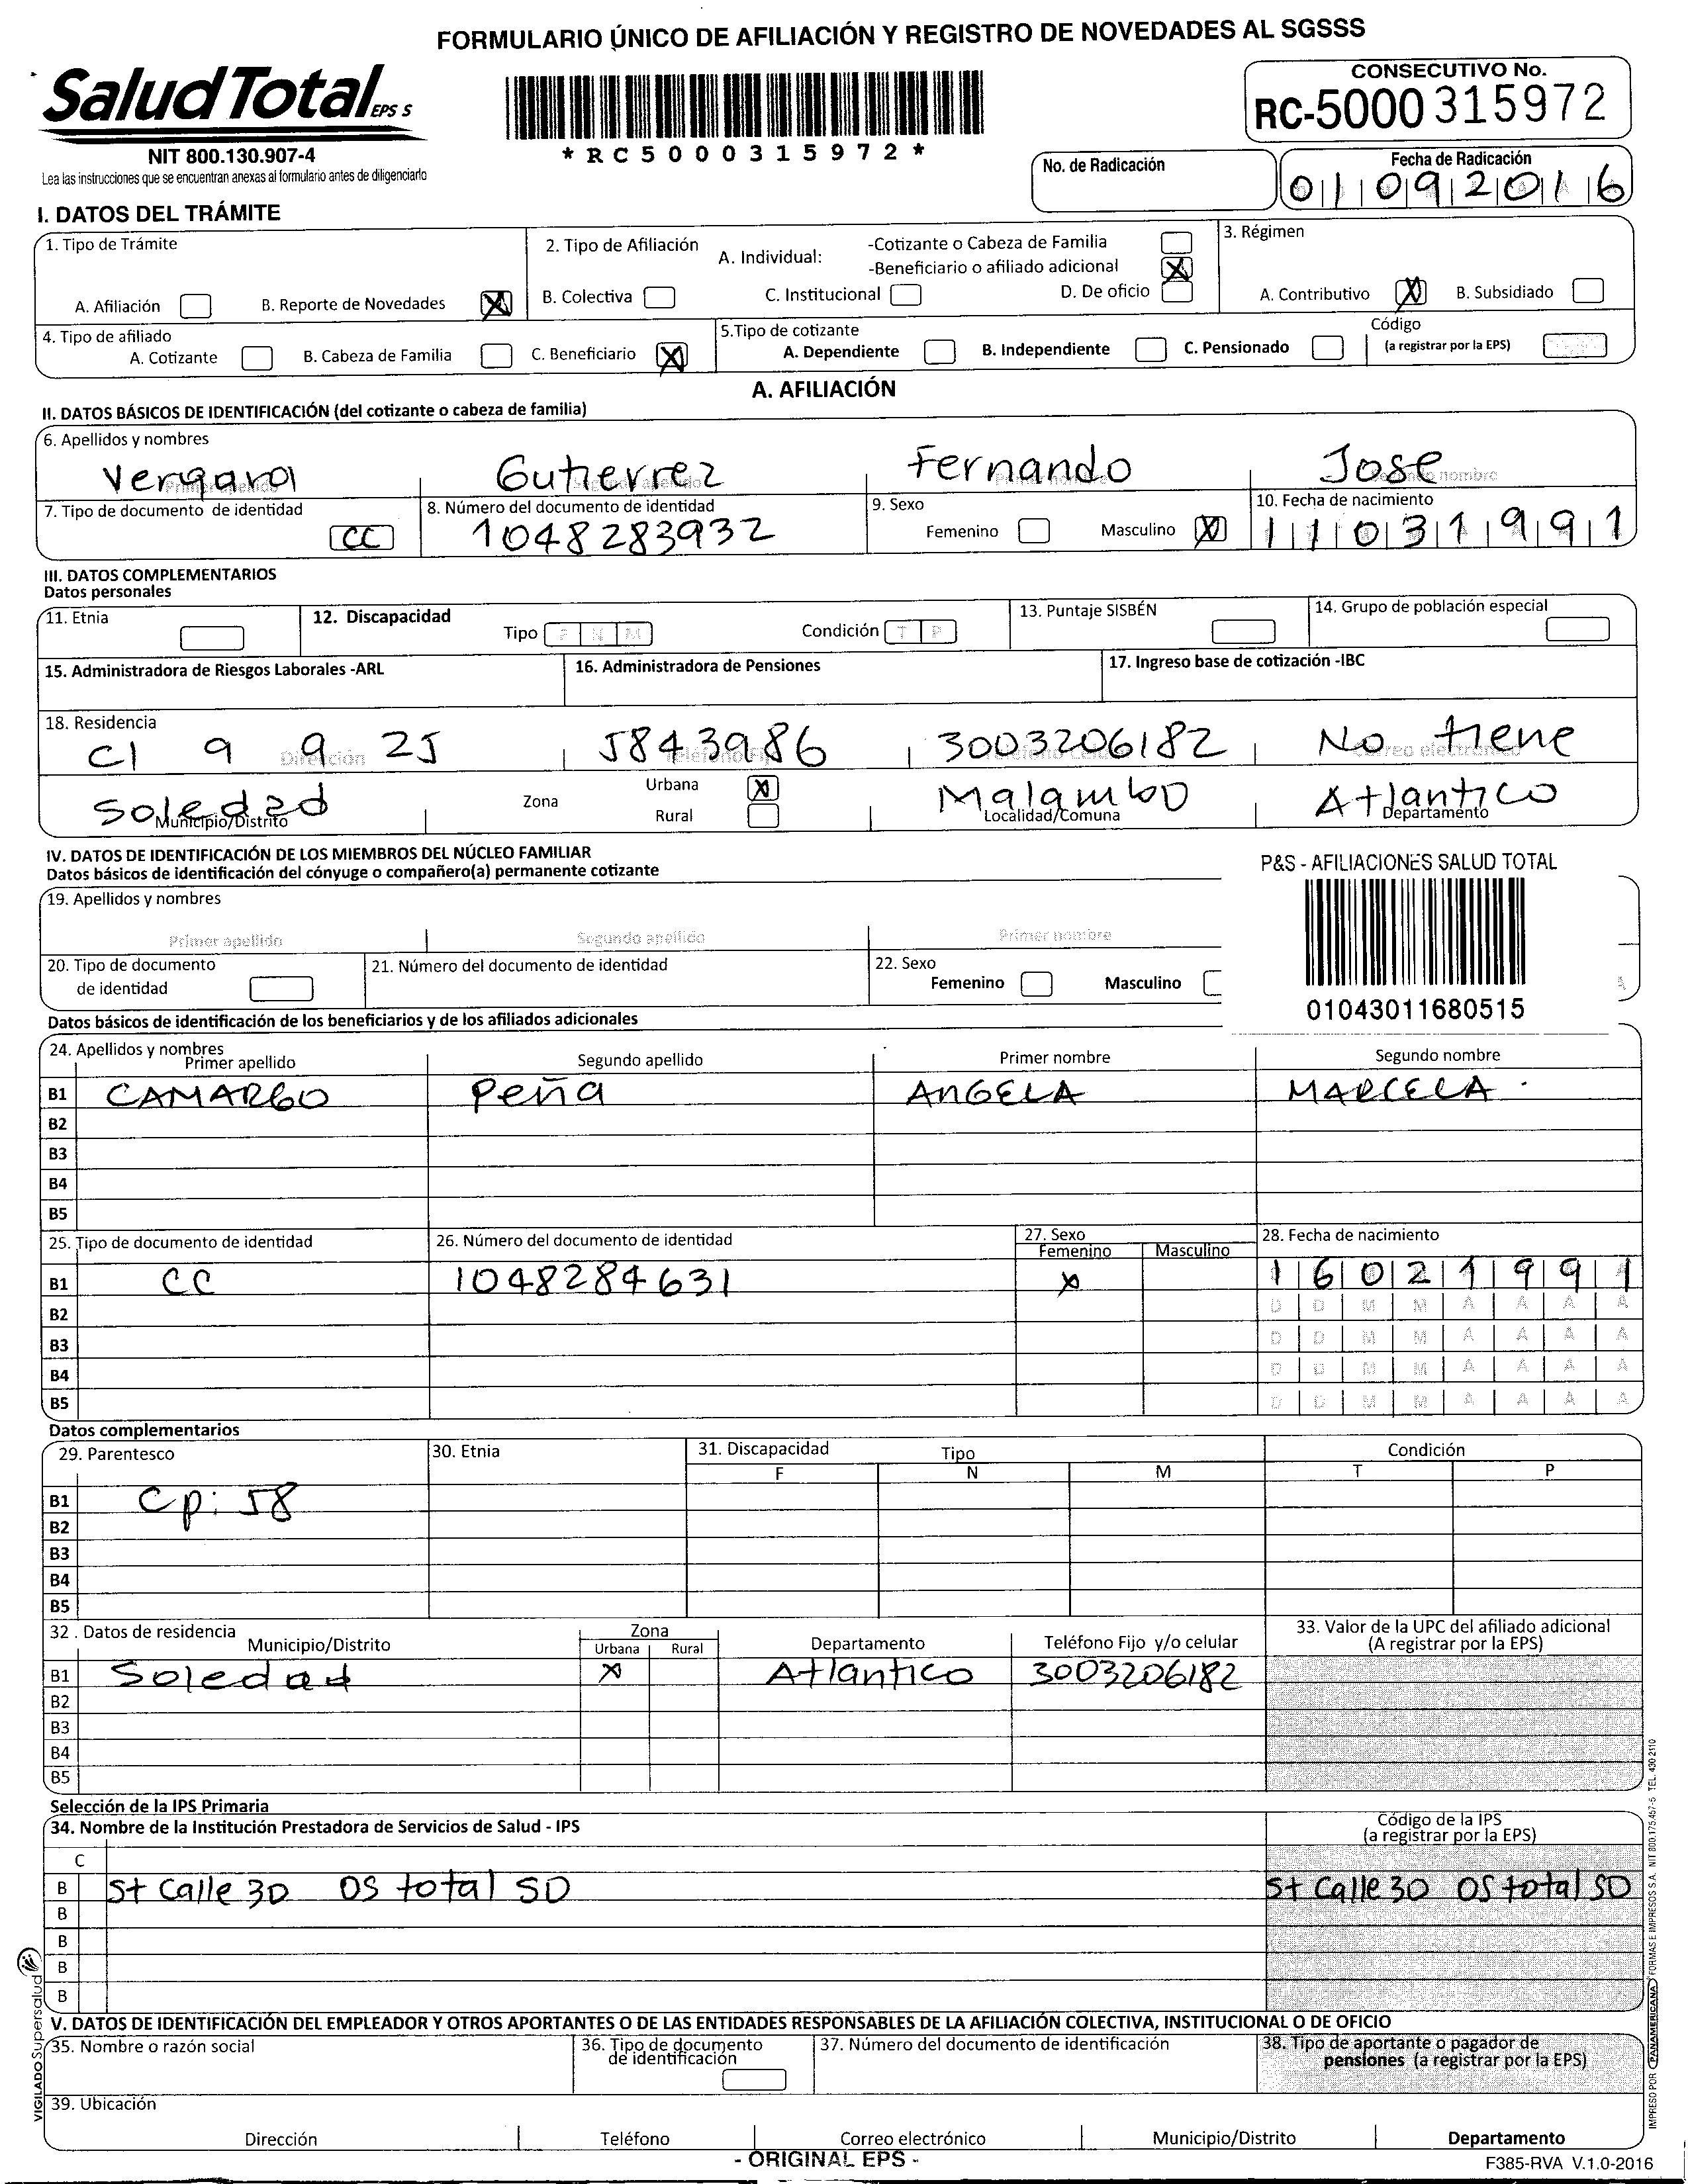 FORMULARIO ÚNICO DE AFILIACIÓN Y REGISTRO DE NOVEDADES AL SGSSS
SaludTotal EPS S
NIT 800.130.907-4
Lea las instrucciones que se encuentran anexas al formulario antes de diligenciarlo
*RC5000315972*
CONSECUTIVO No.
RC-5000 315972
No. de Radicación
Fecha de Radicación
01092016
I. DATOS DEL TRÁMITE
1. Tipo de Trámite
A. Afiliación
B. Reporte de Novedades X
2. Tipo de Afiliación
A. Individual:
-Cotizante o Cabeza de Familia
-Beneficiario o afiliado adicional X
B. Colectiva
C. Institucional
D. De oficio
3. Régimen
A. Contributivo X
B. Subsidiado
4. Tipo de afiliado
A. Cotizante
B. Cabeza de Familia
C. Beneficiario X
5.Tipo de cotizante
A. Dependiente
B. Independiente
C. Pensionado
Código
(a registrar por la EPS)
A. AFILIACIÓN
II. DATOS BÁSICOS DE IDENTIFICACIÓN (del cotizante o cabeza de familia)
6. Apellidos y nombres
Vergara Gutierrez Fernando Jose
7. Tipo de documento de identidad
CC
8. Número del documento de identidad
1048283932
9. Sexo
Femenino
Masculino X
10. Fecha de nacimiento
11031991
III. DATOS COMPLEMENTARIOS
Datos personales
11. Etnia
12. Discapacidad
Tipo F N M
Condición T P
13. Puntaje SISBÉN
14. Grupo de población especial
15. Administradora de Riesgos Laborales -ARL
16. Administradora de Pensiones
17. Ingreso base de cotización -IBC
18. Residencia
Cl 9 9 25 5843986 3003206182 No tiene
Dirección
Soledad
Municipio/Distrito
Zona
Urbana X
Rural
Malambo
Localidad/Comuna
Atlantico
Departamento
IV. DATOS DE IDENTIFICACIÓN DE LOS MIEMBROS DEL NÚCLEO FAMILIAR
Datos básicos de identificación del cónyuge o compañero(a) permanente cotizante
P&S - AFILIACIONES SALUD TOTAL
01043011680515
19. Apellidos y nombres
Primer apellido
Segundo apellido
Primer nombre
20. Tipo de documento
de identidad
21. Número del documento de identidad
22. Sexo
Femenino
Masculino
Datos básicos de identificación de los beneficiarios y de los afiliados adicionales
24. Apellidos y nombres
Primer apellido Segundo apellido Primer nombre Segundo nombre
B1 CAMARGO Peña ANGELA MARCELA
B2
B3
B4
B5
25. Tipo de documento de identidad
26. Número del documento de identidad
27. Sexo
Femenino Masculino
28. Fecha de nacimiento
B1 CC 1048284631 X 16021991
B2 D D M M A A A A
B3 D D M M A A A A
B4 D D M M A A A A
B5 D D M M A A A A
Datos complementarios
29. Parentesco
30. Etnia
31. Discapacidad
Tipo
F N M
Condición
T P
B1 Cp: 58
B2
B3
B4
B5
32 . Datos de residencia
Municipio/Distrito
Zona
Urbana Rural
Departamento
Teléfono Fijo y/o celular
33. Valor de la UPC del afiliado adicional
(A registrar por la EPS)
B1 Soledad X Atlantico 3003206182
B2
B3
B4
B5
Selección de la IPS Primaria
34. Nombre de la Institución Prestadora de Servicios de Salud - IPS
Código de la IPS
(a registrar por la EPS)
C
B St Calle 30 OS total SD St Calle 30 OS total SD
B
B
B
B
V. DATOS DE IDENTIFICACIÓN DEL EMPLEADOR Y OTROS APORTANTES O DE LAS ENTIDADES RESPONSABLES DE LA AFILIACIÓN COLECTIVA, INSTITUCIONAL O DE OFICIO
35. Nombre o razón social
36. Tipo de documento
de identificación
37. Número del documento de identificación
38. Tipo de aportante o pagador de
pensiones (a registrar por la EPS)
39. Ubicación
Dirección Teléfono Correo electrónico Municipio/Distrito Departamento
- ORIGINAL EPS -
F385-RVA V.1.0-2016
VIGILADO Supersalud
IMPRESO POR PANAMERICANA FORMAS E IMPRESOS S.A. NIT 800.175.457-5 TEL. 430 2110